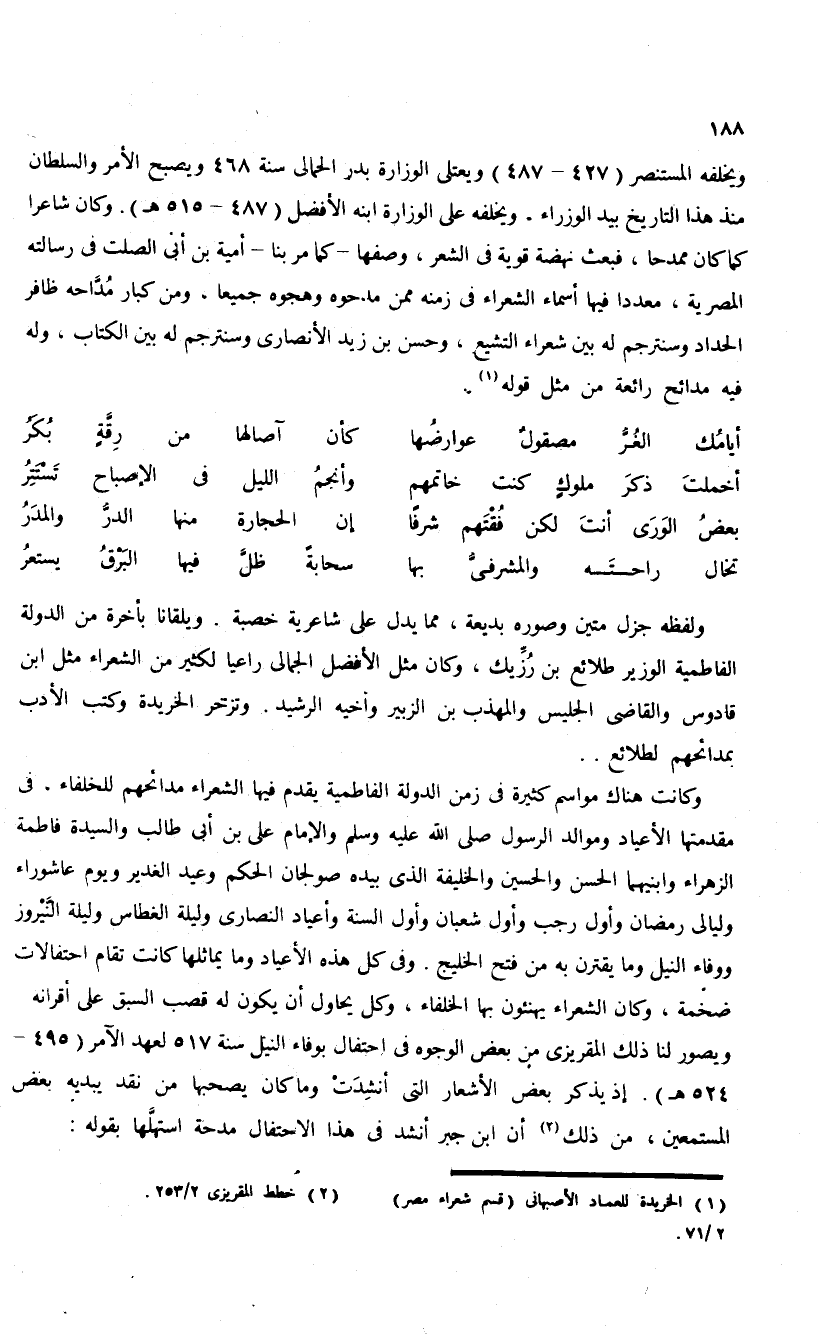 ١٨٨
ويخلفه المستنصر ( ٤٢٧ – ٤٨٧ ) ويعتلى الوزارة بدر الجمالى سنة ٤٦٨ ويصبح الأمر والسلطان
منذ هذا التاريخ بيد الوزراء . ويخلفه على الوزارة ابنه الأفضل ( ٤٨٧ – ٥١٥ هـ ) . وكان شاعرا
كما كان ممدحا ، فبعث نهضة قوية فى الشعر ، وصفها – كما مر بنا – أمية بن أبى الصلت فى رسالته
المصرية ، معددا فيها أسماء الشعراء فى زمنه ممن مدحوه وهجوه جميعا . ومن كبار مُدَّاحه ظافر
الحداد وسنترجم له بين شعراء التشيع ، وحسن بن زيد الأنصارى وسنترجم له بين الكتاب ، وله
فيه مدائح رائعة من مثل قوله(١) .
أيامُك الغُرُّ مصقولٌ عوارضُها كأن آصالها من رِقَّةٍ بُكَرُ
أخملتَ ذكرَ ملوكٍ كنت خاتمهم وأنجمُ الليل فى الإصباح تَسْتَتِرُ
بعضُ الوَرَى أنتَ لكن فُقْتَهم شرفًا إن الحجارة منها الدرُّ والمدَرُ
تخال راحـتَـــه والمشرفىُّ بها سحابةً ظلَّ فيها البَرْقُ يستعرُ
ولفظه جزل متين وصوره بديعة ، مما يدل على شاعرية خصبة . ويلقانا بأخرة من الدولة
الفاطمية الوزير طلائع بن رُزِّيك ، وكان مثل الأفضل الجمالى راعيا لكثير من الشعراء مثل ابن
قادوس والقاضى الجليس والمهذب بن الزبير وأخيه الرشيد . وتزخر الخريدة وكتب الأدب
بمدائحهم لطلائع . .
وكانت هناك مواسم كثيرة فى زمن الدولة الفاطمية يقدم فيها الشعراء مدائحهم للخلفاء . فى
مقدمتها الأعياد وموالد الرسول صلى الله عليه وسلم والإمام على بن أبى طالب والسيدة فاطمة
الزهراء وابنيهما الحسن والحسين والخليفة الذى بيده صولجان الحكم وعيد الغدير ويوم عاشوراء
وليالى رمضان وأول رجب وأول شعبان وأول السنة وأعياد النصارى وليلة الغطاس وليلة النَّيْروز
ووفاء النيل وما يقترن به من فتح الخليج . وفى كل هذه الأعياد وما يماثلها كانت تقام احتفالات
ضخمة ، وكان الشعراء يهنئون بها الخلفاء ، وكل يحاول أن يكون له قصب السبق على أقرانه
ويصور لنا ذلك المقريزى من بعض الوجوه فى احتفال بوفاء النيل سنة ٥١٧ لعهد الآمر ( ٤٩٥ –
٥٢٤ هـ ) . إذ يذكر بعض الأشعار التى أنشِدَتْ وما كان يصحبها من نقد يبديه بعض
المستمعين ، من ذلك(٢) أن ابن جبر أنشد فى هذا الاحتفال مدحة استهلَّها بقوله :
(١) الخريدة للعماد الأصبهانى (قسم شعراء مصر) (٢) خطط المقريزى ٢٥٣/٢ .
٧١/٢ .